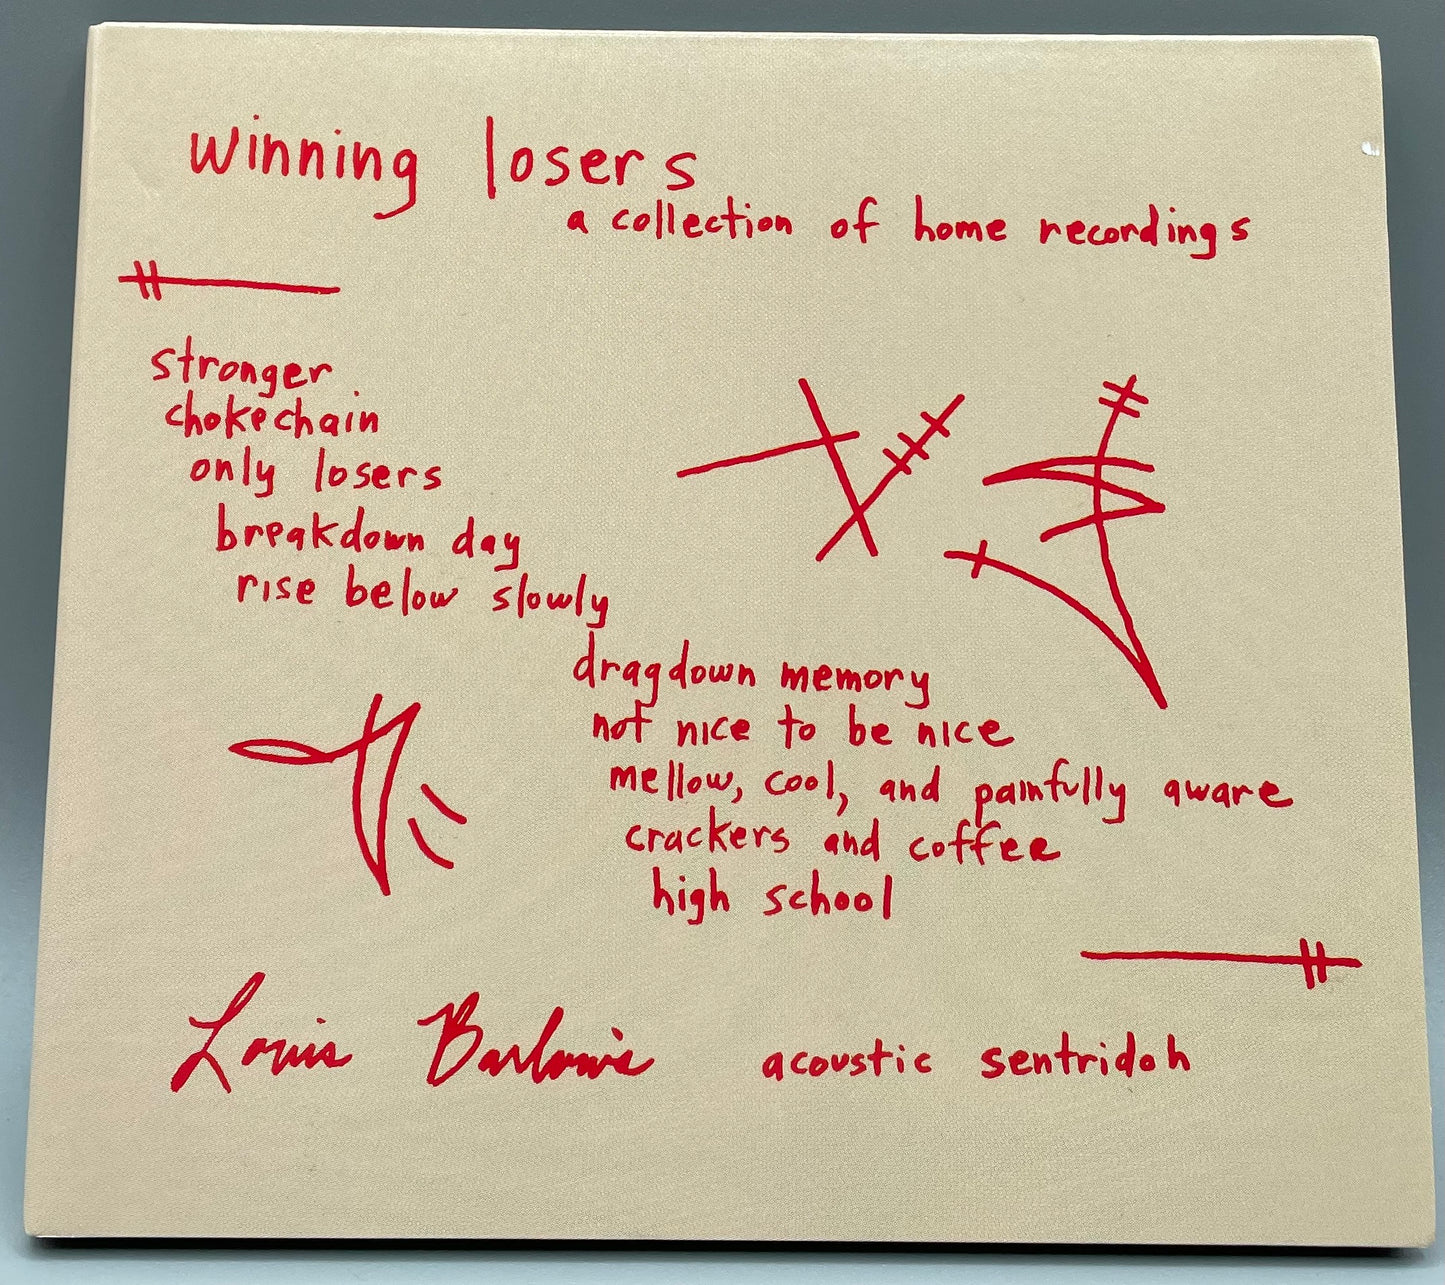 winning losers
a collection of home recordings
stronger
chokechain
only losers
breakdown day
rise below slowly
dragdown memory
not nice to be nice
mellow, cool, and painfully aware
crackers and coffee
high school
Louis Barlowie acoustic sentridoh